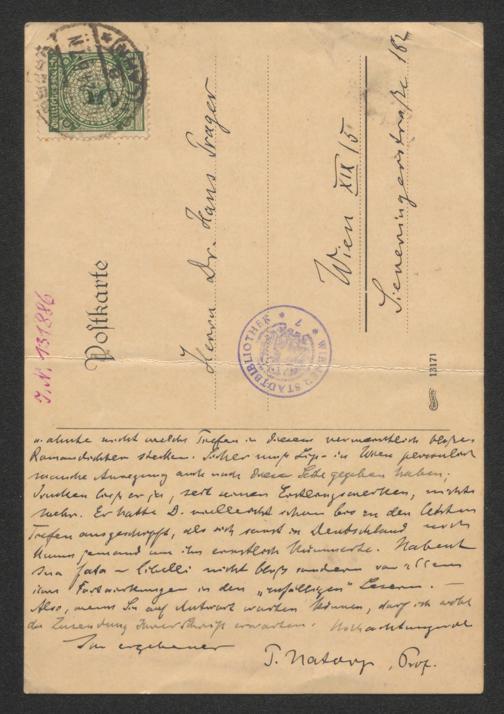 Postkarte
J.N. 131886
Herrn Dr. Hans Prager
Wien XIX/5
Sieveringerstraße 182
WIENER STADTBIBLIOTHEK
13171
u. ahnte nicht welche Tiefen in diesem vermeintlich bloßen
Romandichter stecken. Sicher muß in Wien persönlich
manche Anregung auch nach dieser Seite gegeben haben;
er ja, seit seinen Erstlingswerken, nichts
mehr. Er hatte D. vielleicht schon bis in den letzten
Tiefen ausgeschöpft, als sich sonst in Deutschland noch
kaum jemand um ihn ernstlich kümmerte. Habent
sua fata libelli nicht bloß sondern vor allem
ihre Fortwirkungen in den „zufälligen" Lesern. —
Also, wenn Sie auf Antwort warten können, darf ich wohl
die Zusendung Ihrer Schrift erwarten. Hochachtungsvoll
Ihr ergebener
P. Natorp, Prof.